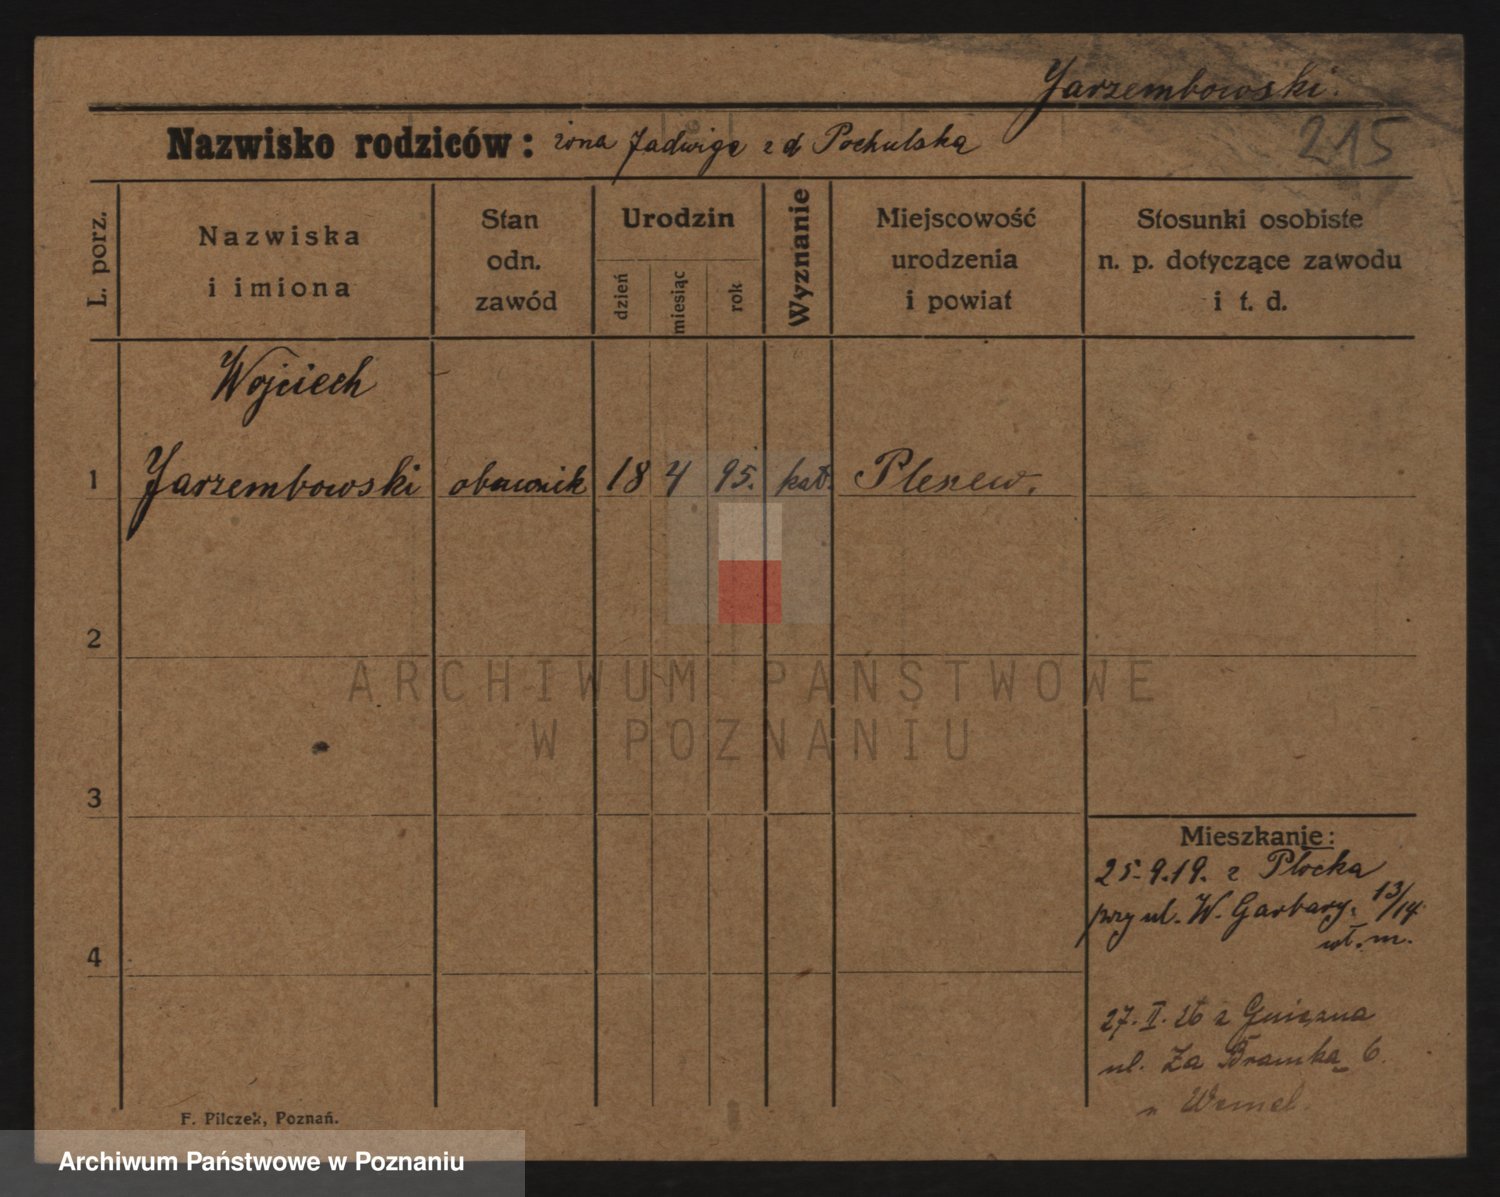 Jarzembowski.
215
Nazwisko rodziców: żona Jadwiga z d Pochulska
L. porz.
Nazwiska
i imiona
Stan
odn.
zawód
Urodzin
dzień
miesiąc
rok
Wyznanie
Miejscowość
urodzenia
i powiat
Stosunki osobiste
n. p. dotyczące zawodu
i t. d.
Wojciech
1 Jarzembowski obuwnik 18 4 95. kat. Pleszew.
2
3
4
Mieszkanie:
25.9.19. z Płocka
przy ul. W. Garbary. 13/14
wł. m.
27. II. 26 z Gniezna
ul. Za Bramką 6.
F. Pilczek, Poznań.
ARCHIWUM PAŃSTWOWE
W POZNANIU
Archiwum Państwowe w Poznaniu